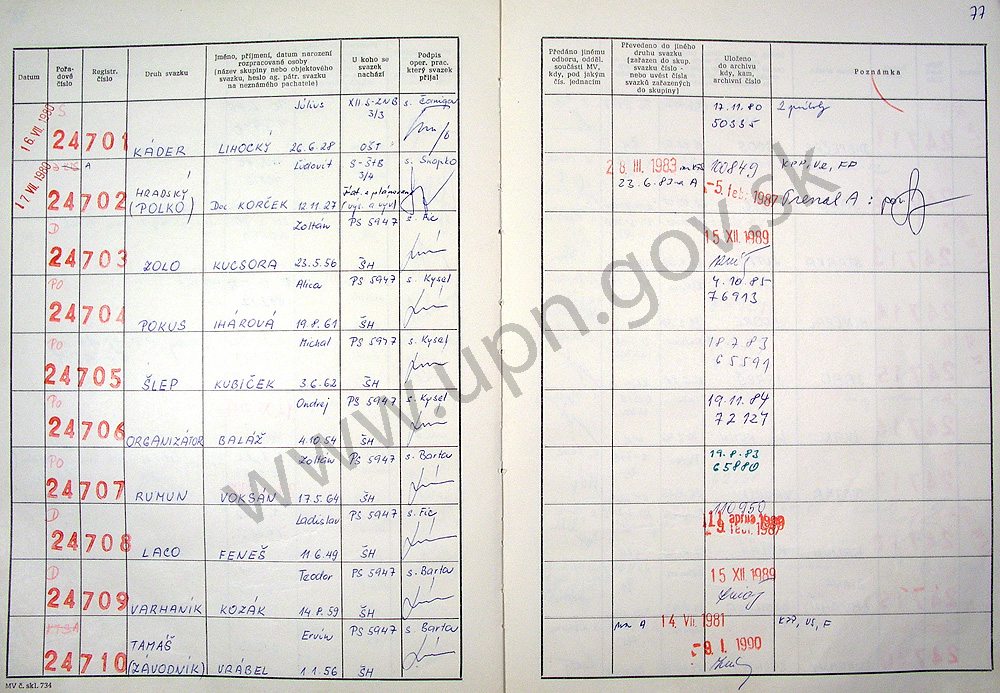 77
Datum
Pořa-
dové
číslo
Registr.
číslo
Druh svazku
Jméno, příjmení, datum narození
rozpracované osoby
(název skupiny nebo objektového
svazku, heslo ag. pátr. svazku
na neznámého pachatele)
U koho se
svazek
nachází
Podpis
oper. prac.
který svazek
přijal
Předáno jinému
odboru, odděl.
součásti MV,
kdy, pod jakým
čís. jednacím
Převedeno do jiného
druhu svazku
(zařazen do skup.
svazku číslo -
nebo uvést čísla
svazků zařazených
do skupiny)
Uloženo
do archivu
kdy, kam,
archivní číslo
Poznámka
16. VII. 1980
S
24701
KÁDER
Július
LIHOCKÝ 26.6.28
XII. S-ZNB
3/3
OŠT
17.11.80
50335
17. VII. 1980
A
24702
HRADSKÝ
(POLKO)
Ľudovít
Doc KORČEK 12.11.27
S-ŠtB
3/4
s. Snopko
28. III. 1983
23.6.83 na A
100849
-5. febr. 1987
KPP, VZ, FP
Prevzal A :
D
24703
ZOLO
Zoltán
KUCSORA 23.5.56
PS 5947
ŠH
s. Fic
15. XII. 1989
PO
24704
POKUS
Alica
IHÁROVÁ 19.8.61
PS 5947
ŠH
s. Kysel
4.10.85
76913
PO
24705
ŠLEP
Michal
KUBIČEK 3.6.62
PS 5947
ŠH
s. Kysel
18.7.83
65591
PO
24706
ORGANIZÁTOR
Ondrej
BALÁŽ 4.10.54
PS 5947
ŠH
s. Kysel
19.11.84
72127
PO
24707
RUMUN
Zoltán
VOKSÁN 17.5.64
PS 5947
ŠH
s. Barta
19.8.83
65880
D
24708
LACO
Ladislav
FENEŠ 11.6.49
PS 5947
ŠH
s. Fic
110950
D
24709
VARHANÍK
Teodor
KOZÁK 14.8.59
PS 5947
ŠH
s. Barta
15. XII. 1989
24710
TAMÁŠ
(ZÁVODNÍK)
Ervín
VRÁBEL 1.1.56
PS 5947
ŠH
s. Barta
na A 14. VII. 1981
-9. I. 1990
MV č. skl. 734
www.upn.gov.sk